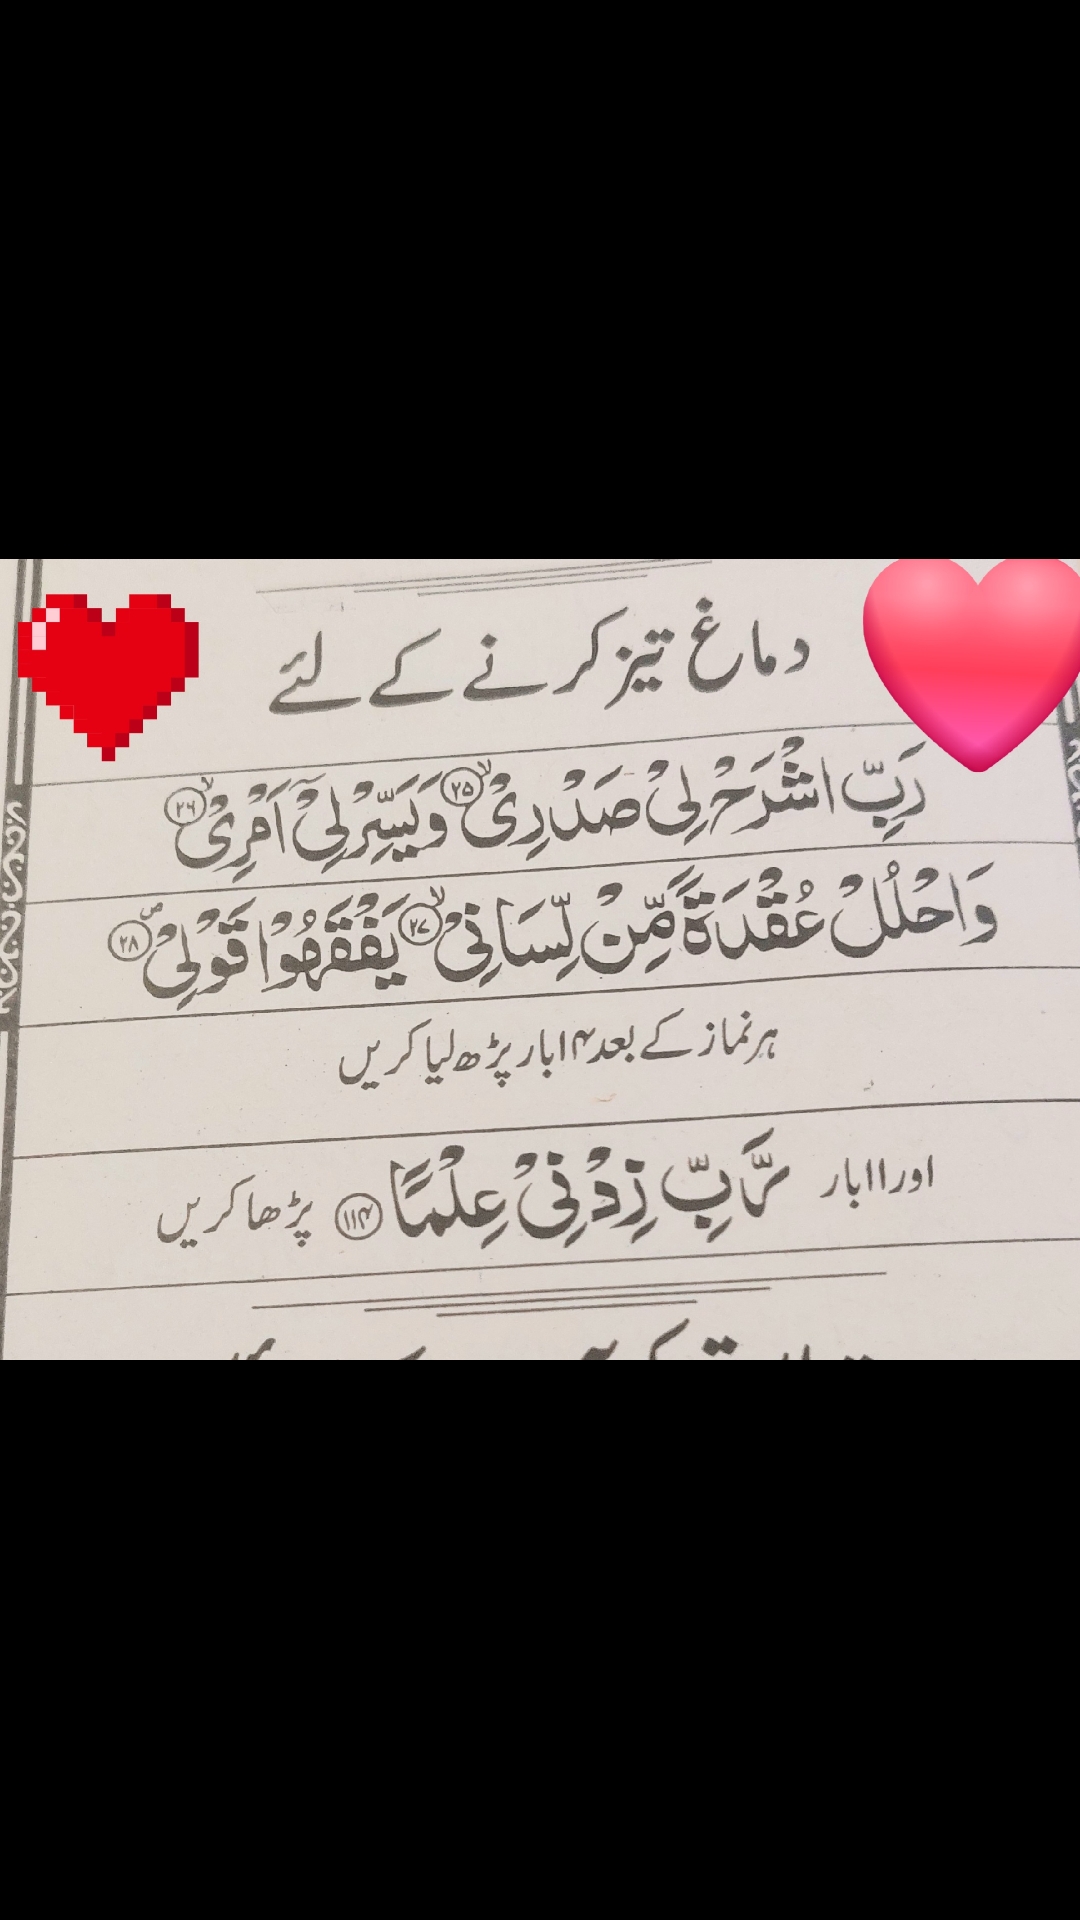 دماغ تیز کرنے کے لئے
رَبِّ اشْرَحْ لِیْ صَدْرِیْ ۙ﴿۲۵﴾ وَیَسِّرْ لِیْۤ اَمْرِیْ ۙ﴿۲۶﴾
وَاحْلُلْ عُقْدَةً مِّنْ لِّسَانِیْ ۙ﴿۲۷﴾ یَفْقَهُوْا قَوْلِیْ ۪﴿۲۸﴾
ہر نماز کے بعد ۱۴ بار پڑھ لیا کریں
اور ۱۱ بار رَّبِّ زِدْنِیْ عِلْمًا ﴿۱۱۴﴾ پڑھا کریں